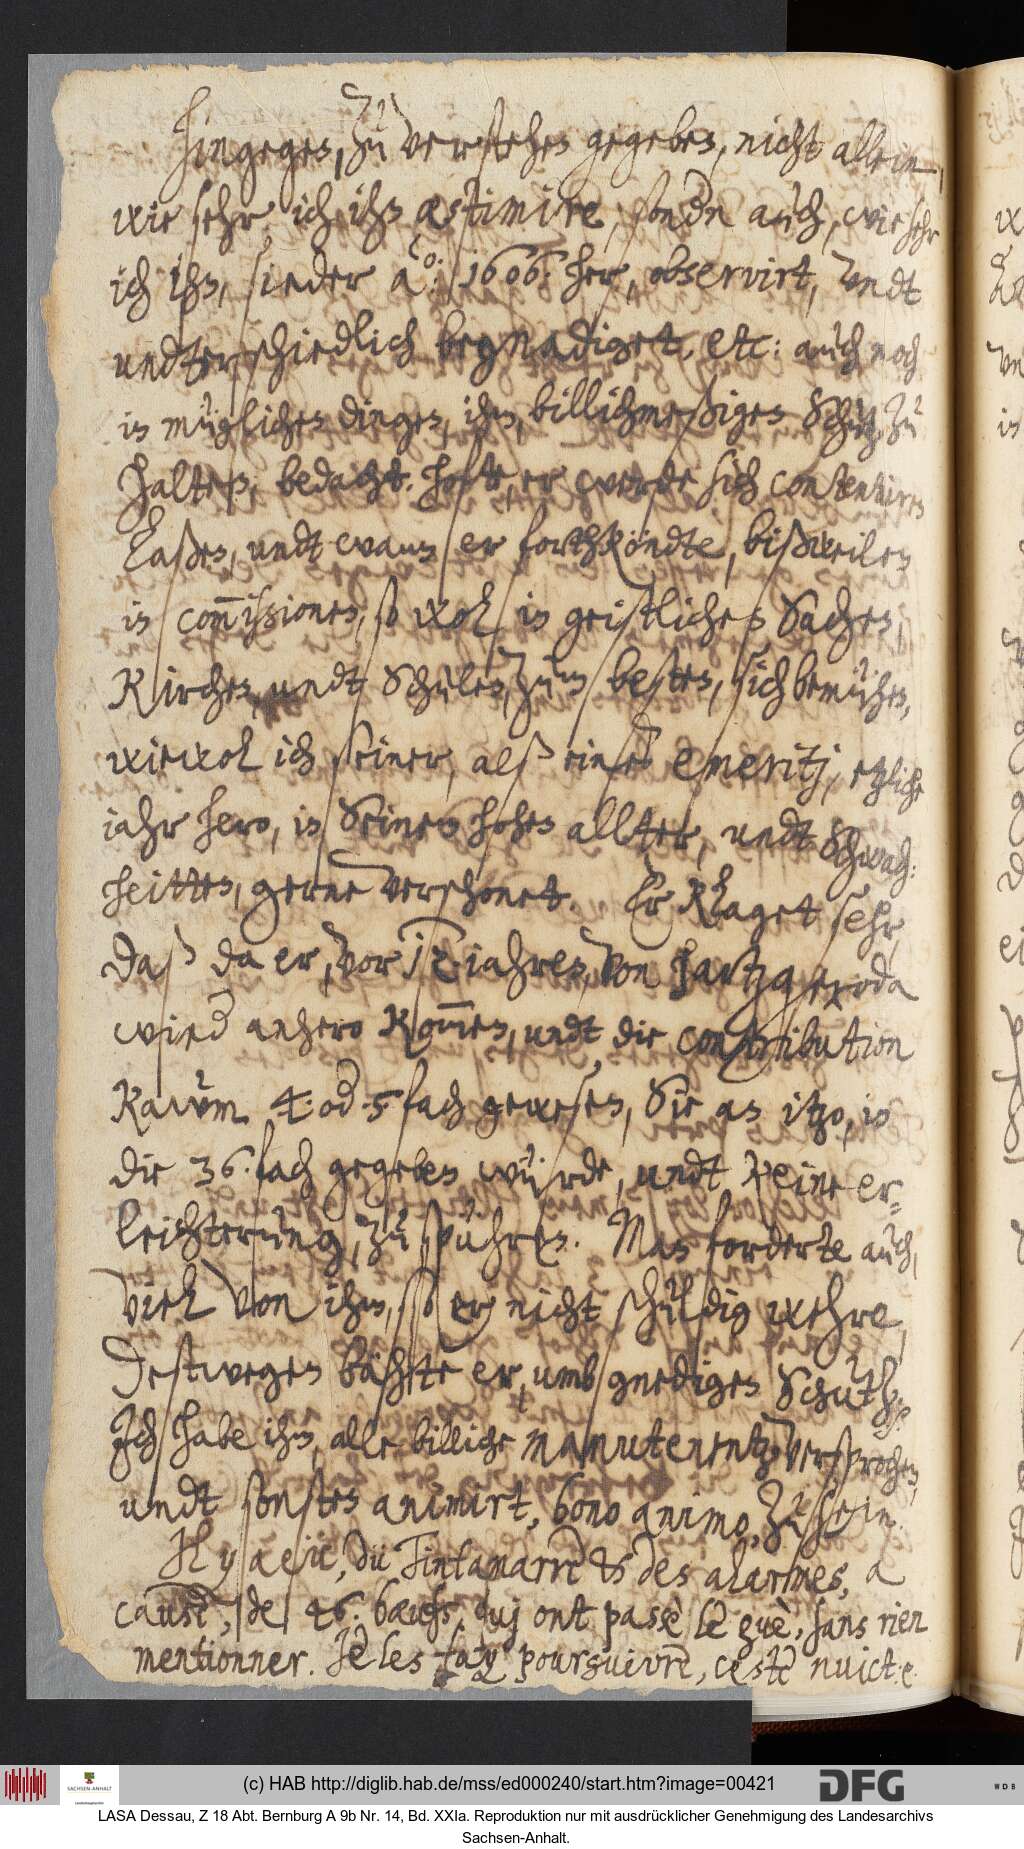 Hingegen, zu verstehen gegeben, nicht allein,
wie sehr ich ihn æstimire, sondn auch, wie sehr
ich ihn, sieder ao: 1606. her, observirt, undt
undterschiedlich begnadiget, etc: auch noch
in müglichen dingen, ihn, billichmeßigen Schutz, zu
halten, bedacht. hofte, er werde sich contentiren
laßen, undt wann er forthköndte, bißweilen
in com̅issionen, so wol in geistlichen Sachen,
Kirchen, undt Schulen, zum besten, sich bemühen,
wiewol ich seiner, alß eines emeritj, etzliche
iahr hero, in Seinem hohen allter, undt Schwach:
heitten, gerne verschonet. Er klaget sehr,
daß da er, vor 12 iahren, von Hartzgeroda
wird anhero kom̅en, undt die contribution
kaum 4. od. 5. fach gewesen, Sie an itzo, in
die 36. fach gegeben würde, undt keine er¬
leichterung, zu spühren. Man forderte auch,
viel von ihm, so er nicht schuldig wehre,
Destwegen bähte er, umb gnediges Schutz.
Jch habe ihm, alle billiche manutenentz versprochen,
undt sonsten animirt, bono animo, zu sein.
Il y a eü, dü Tintamarre & des alarmes, a
cause, de 46. bœufs, quj ont passè le guè, sans rien
mentionner. Je les fay poursuivre, ceste nuict. e
(c) HAB http://diglib.hab.de/mss/ed000240/start.htm?image=00421
DFG
WDB
SACHSEN-ANHALT
LASA Dessau, Z 18 Abt. Bernburg A 9b Nr. 14, Bd. XXIa. Reproduktion nur mit ausdrücklicher Genehmigung des Landesarchivs
Sachsen-Anhalt.